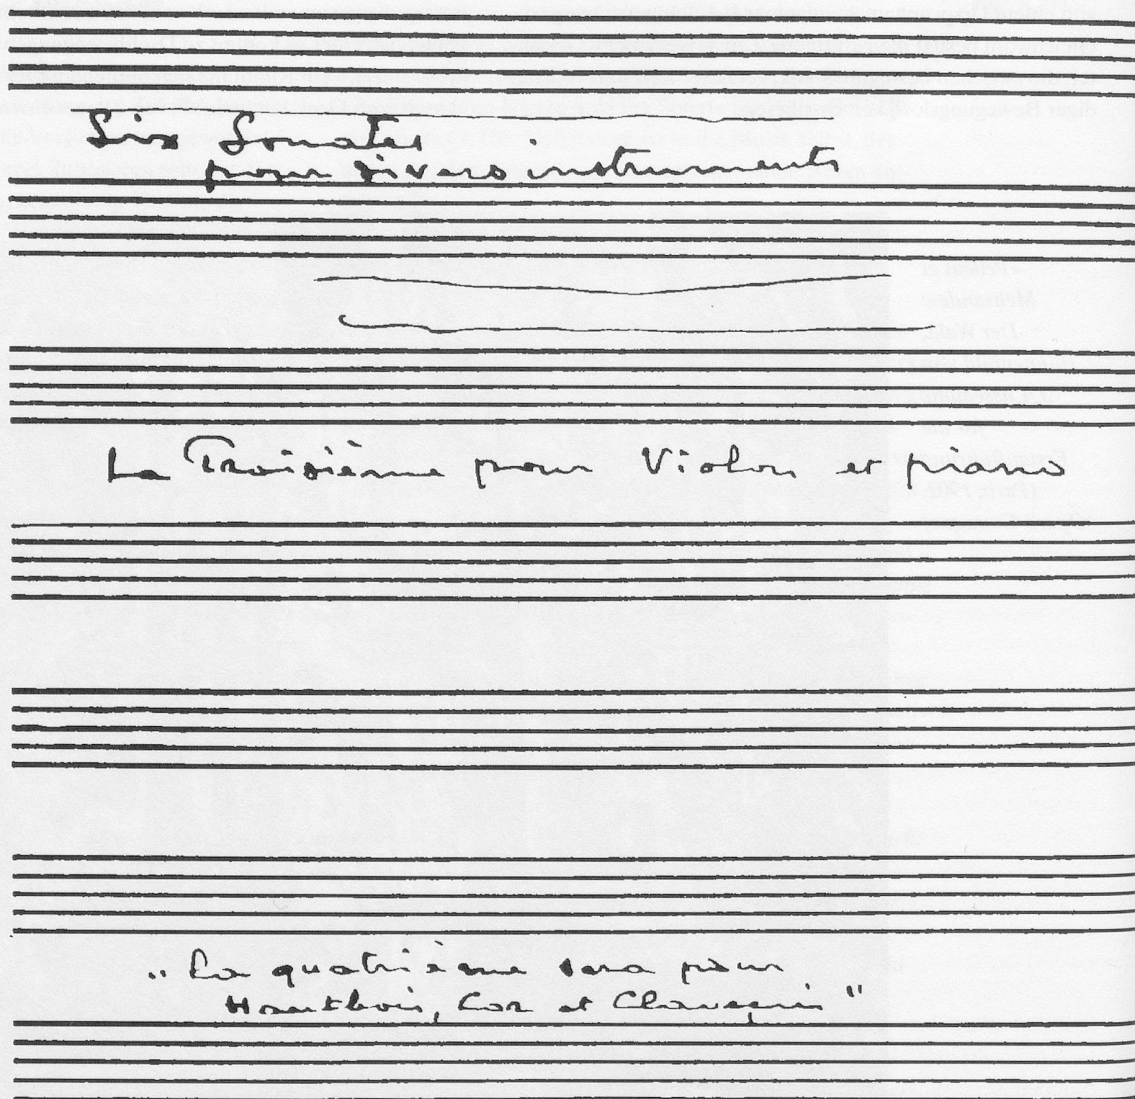 Six Sonates
pour divers instruments
La Troisième pour Violon et piano
„ La quatrième sera pour
Hautbois, Cor et Clavecin "